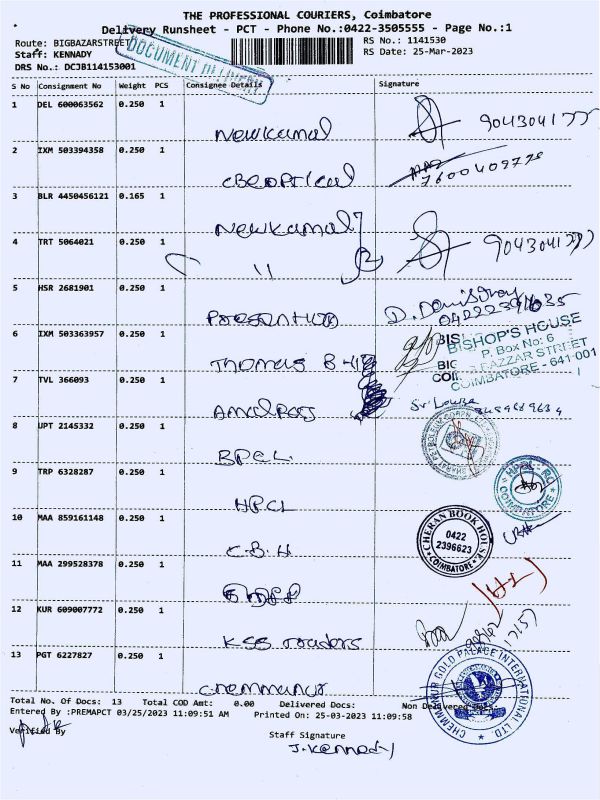 THE PROFESSIONAL COURIERS, Coimbatore
Delivery Runsheet - PCT - Phone No.:0422-3505555 - Page No.:1
Route: BIGBAZARSTREET
RS No.: 1141530
Staff: KENNADY
RS Date: 25-Mar-2023
DRS No.: DCJB114153001
DOCUMENT
S No Consignment No Weight PCS Consignee Details Signature
1 DEL 600063562 0.250 1 Newkamal
2 IXM 503394358 0.250 1 7600409778
3 BLR 4450456121 0.165 1 Newkamal
4 TRT 5064021 0.250 1 "
5 HSR 2681901 0.250 1
6 IXM 503363957 0.250 1 Thomas
BISHOP'S HOUSE
P. Box No: 6
BIG BAZZAR STREET
COIMBATORE - 641 001
7 TVL 366093 0.250 1 Amalraj
8 UPT 2145332 0.250 1 BPCL
9 TRP 6328287 0.250 1 HPCL
COIMBATORE
10 MAA 859161148 0.250 1 C.B.H
CHERAN BOOK HOUSE
0422
2396623
COIMBATORE
11 MAA 299528378 0.250 1
12 KUR 609007772 0.250 1 KSB Traders
13 PGT 6227827 0.250 1 Chemmanur
CHEMMANUR GOLD PALACE INTERNATIONAL LTD.
Total No. Of Docs: 13 Total COD Amt: 0.00 Delivered Docs: Non Delivered
Entered By :PREMAPCT 03/25/2023 11:09:51 AM Printed On: 25-03-2023 11:09:58
Verified By
Staff Signature
J. Kennady